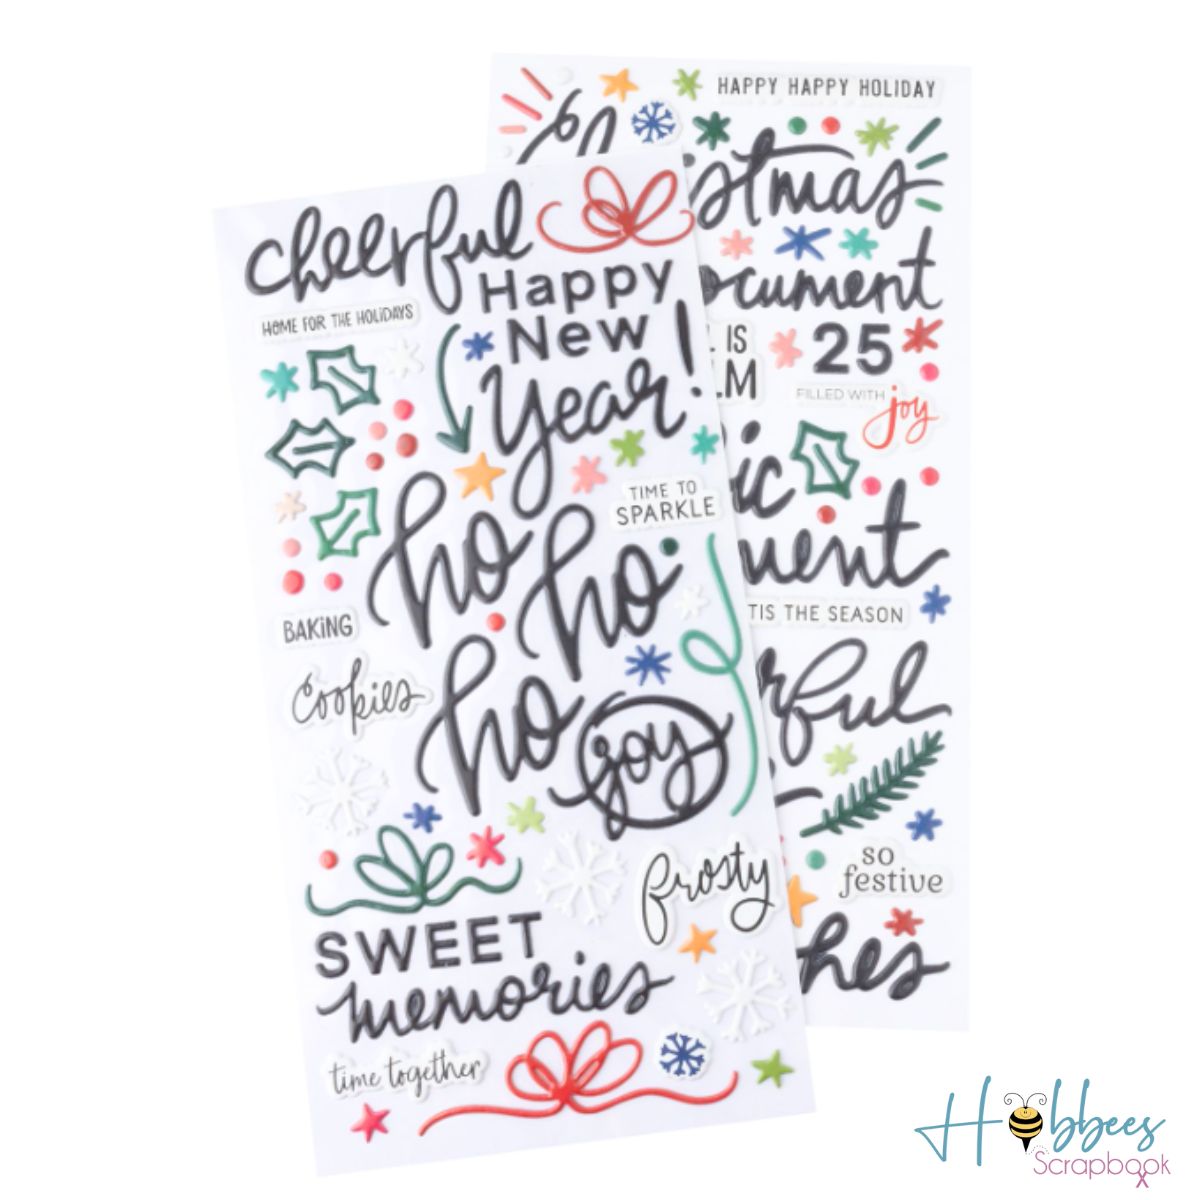 cheerful
Happy
New
Year!
HOME FOR THE HOLIDAYS
ho
ho
TIME TO
SPARKLE
BAKING
cookies
ho
joy
frosty
SWEET
memories
time together
HAPPY HAPPY HOLIDAY
25
IS
FILLED WITH
joy
TIS THE SEASON
so
festive
Hobbees
Scrapbook